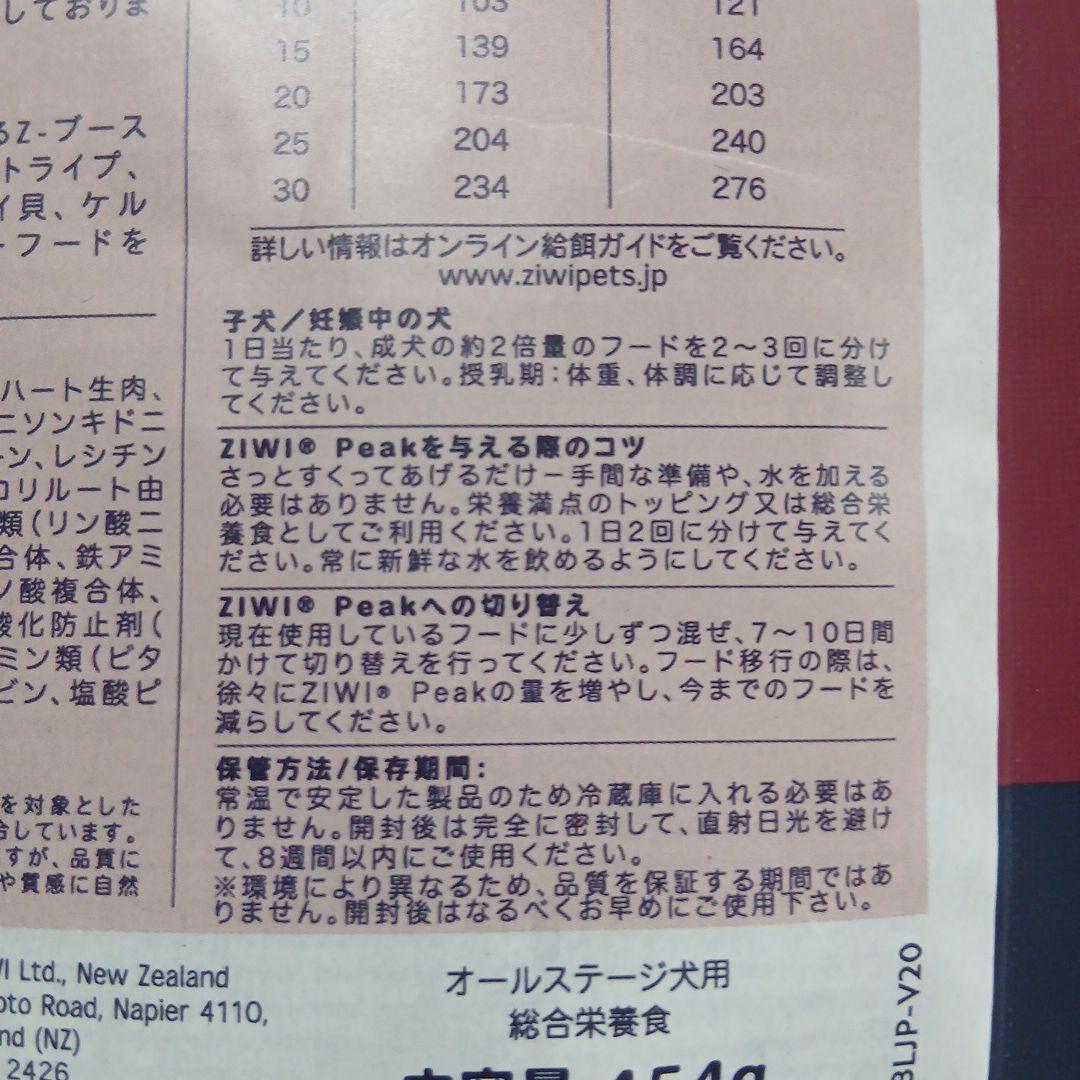 しておりま
るZ-ブース
トライプ、
イ貝、ケル
ーフードを
ハート生肉、
ニソンキドニ
ーン、レシチン
コリルート由
類（リン酸二
合体、鉄アミ
ノ酸複合体、
酸化防止剤（
ミン類（ビタ
ビン、塩酸ピ
を対象とした
合しています。
すが、品質に
や質感に自然
10 103 121
15 139 164
20 173 203
25 204 240
30 234 276
詳しい情報はオンライン給餌ガイドをご覧ください。
www.ziwipets.jp
子犬／妊娠中の犬
1日当たり、成犬の約2倍量のフードを2～3回に分け
て与えてください。授乳期：体重、体調に応じて調整し
てください。
ZIWI® Peakを与える際のコツ
さっとすくってあげるだけー手間な準備や、水を加える
必要はありません。栄養満点のトッピング又は総合栄
養食としてご利用ください。1日2回に分けて与えてく
ださい。常に新鮮な水を飲めるようにしてください。
ZIWI® Peakへの切り替え
現在使用しているフードに少しずつ混ぜ、7～10日間
かけて切り替えを行ってください。フード移行の際は、
徐々にZIWI® Peakの量を増やし、今までのフードを
減らしてください。
保管方法/保存期間:
常温で安定した製品のため冷蔵庫に入れる必要はあ
りません。開封後は完全に密封して、直射日光を避け
て、8週間以内にご使用ください。
※環境により異なるため、品質を保証する期間ではあ
りません。開封後はなるべくお早めにご使用下さい。
I Ltd., New Zealand
oto Road, Napier 4110,
nd (NZ)
2426
オールステージ犬用
総合栄養食
内容量 454g
BLJP-V20